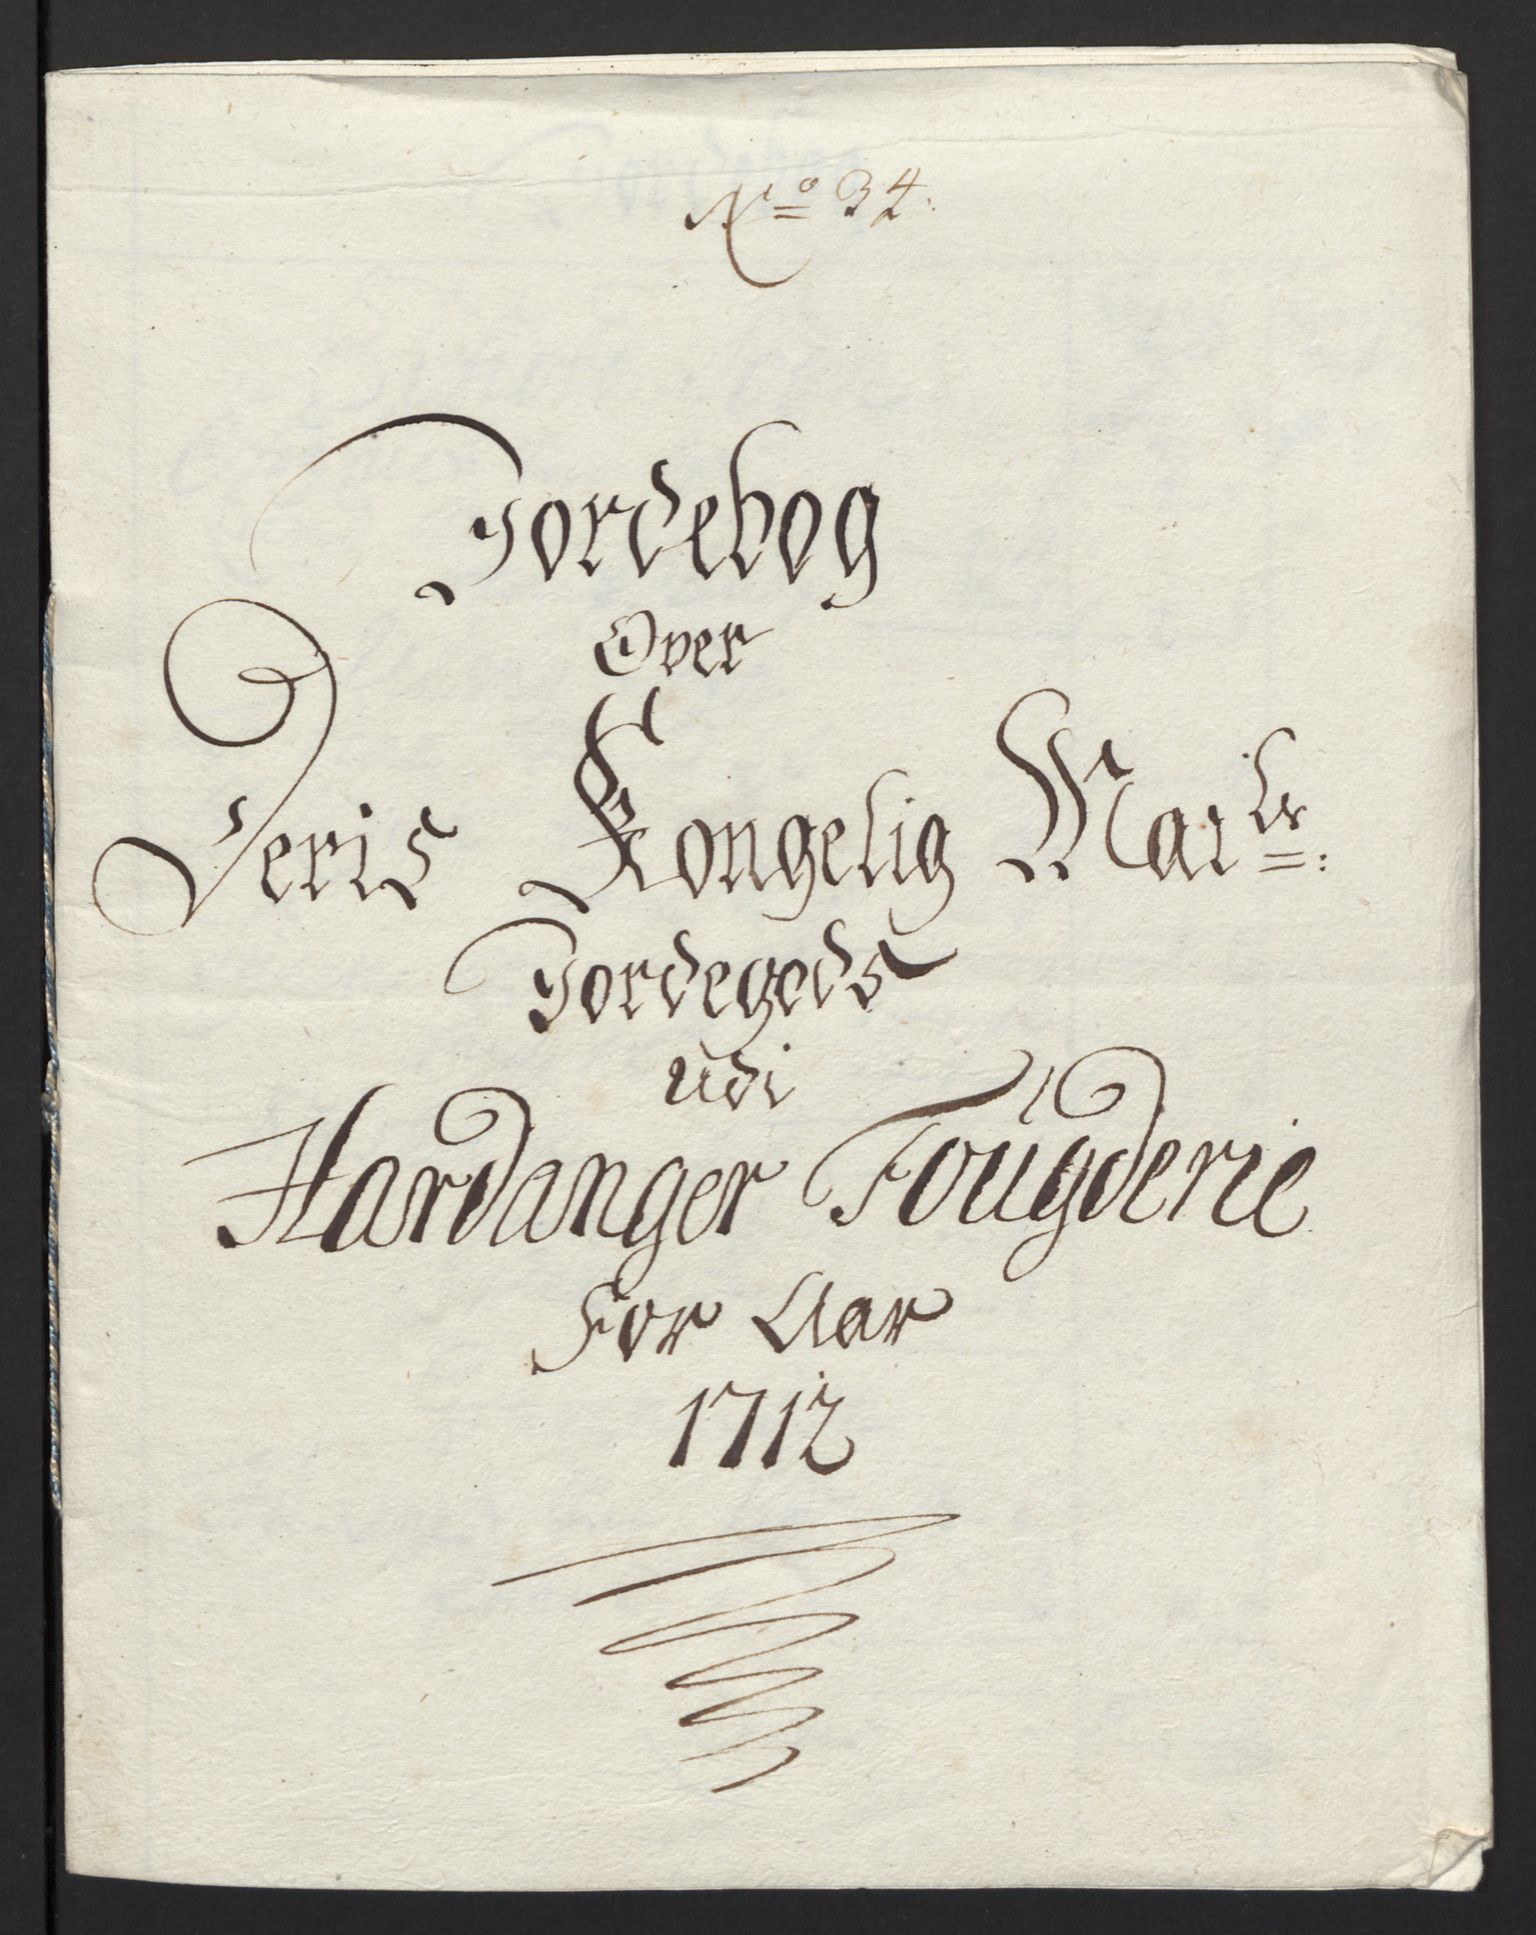 No 34.
Jordebog
Over
Deris Kongelig Maits:
Jordegods
udi
Hardanger Fougderie
For Aar
1712